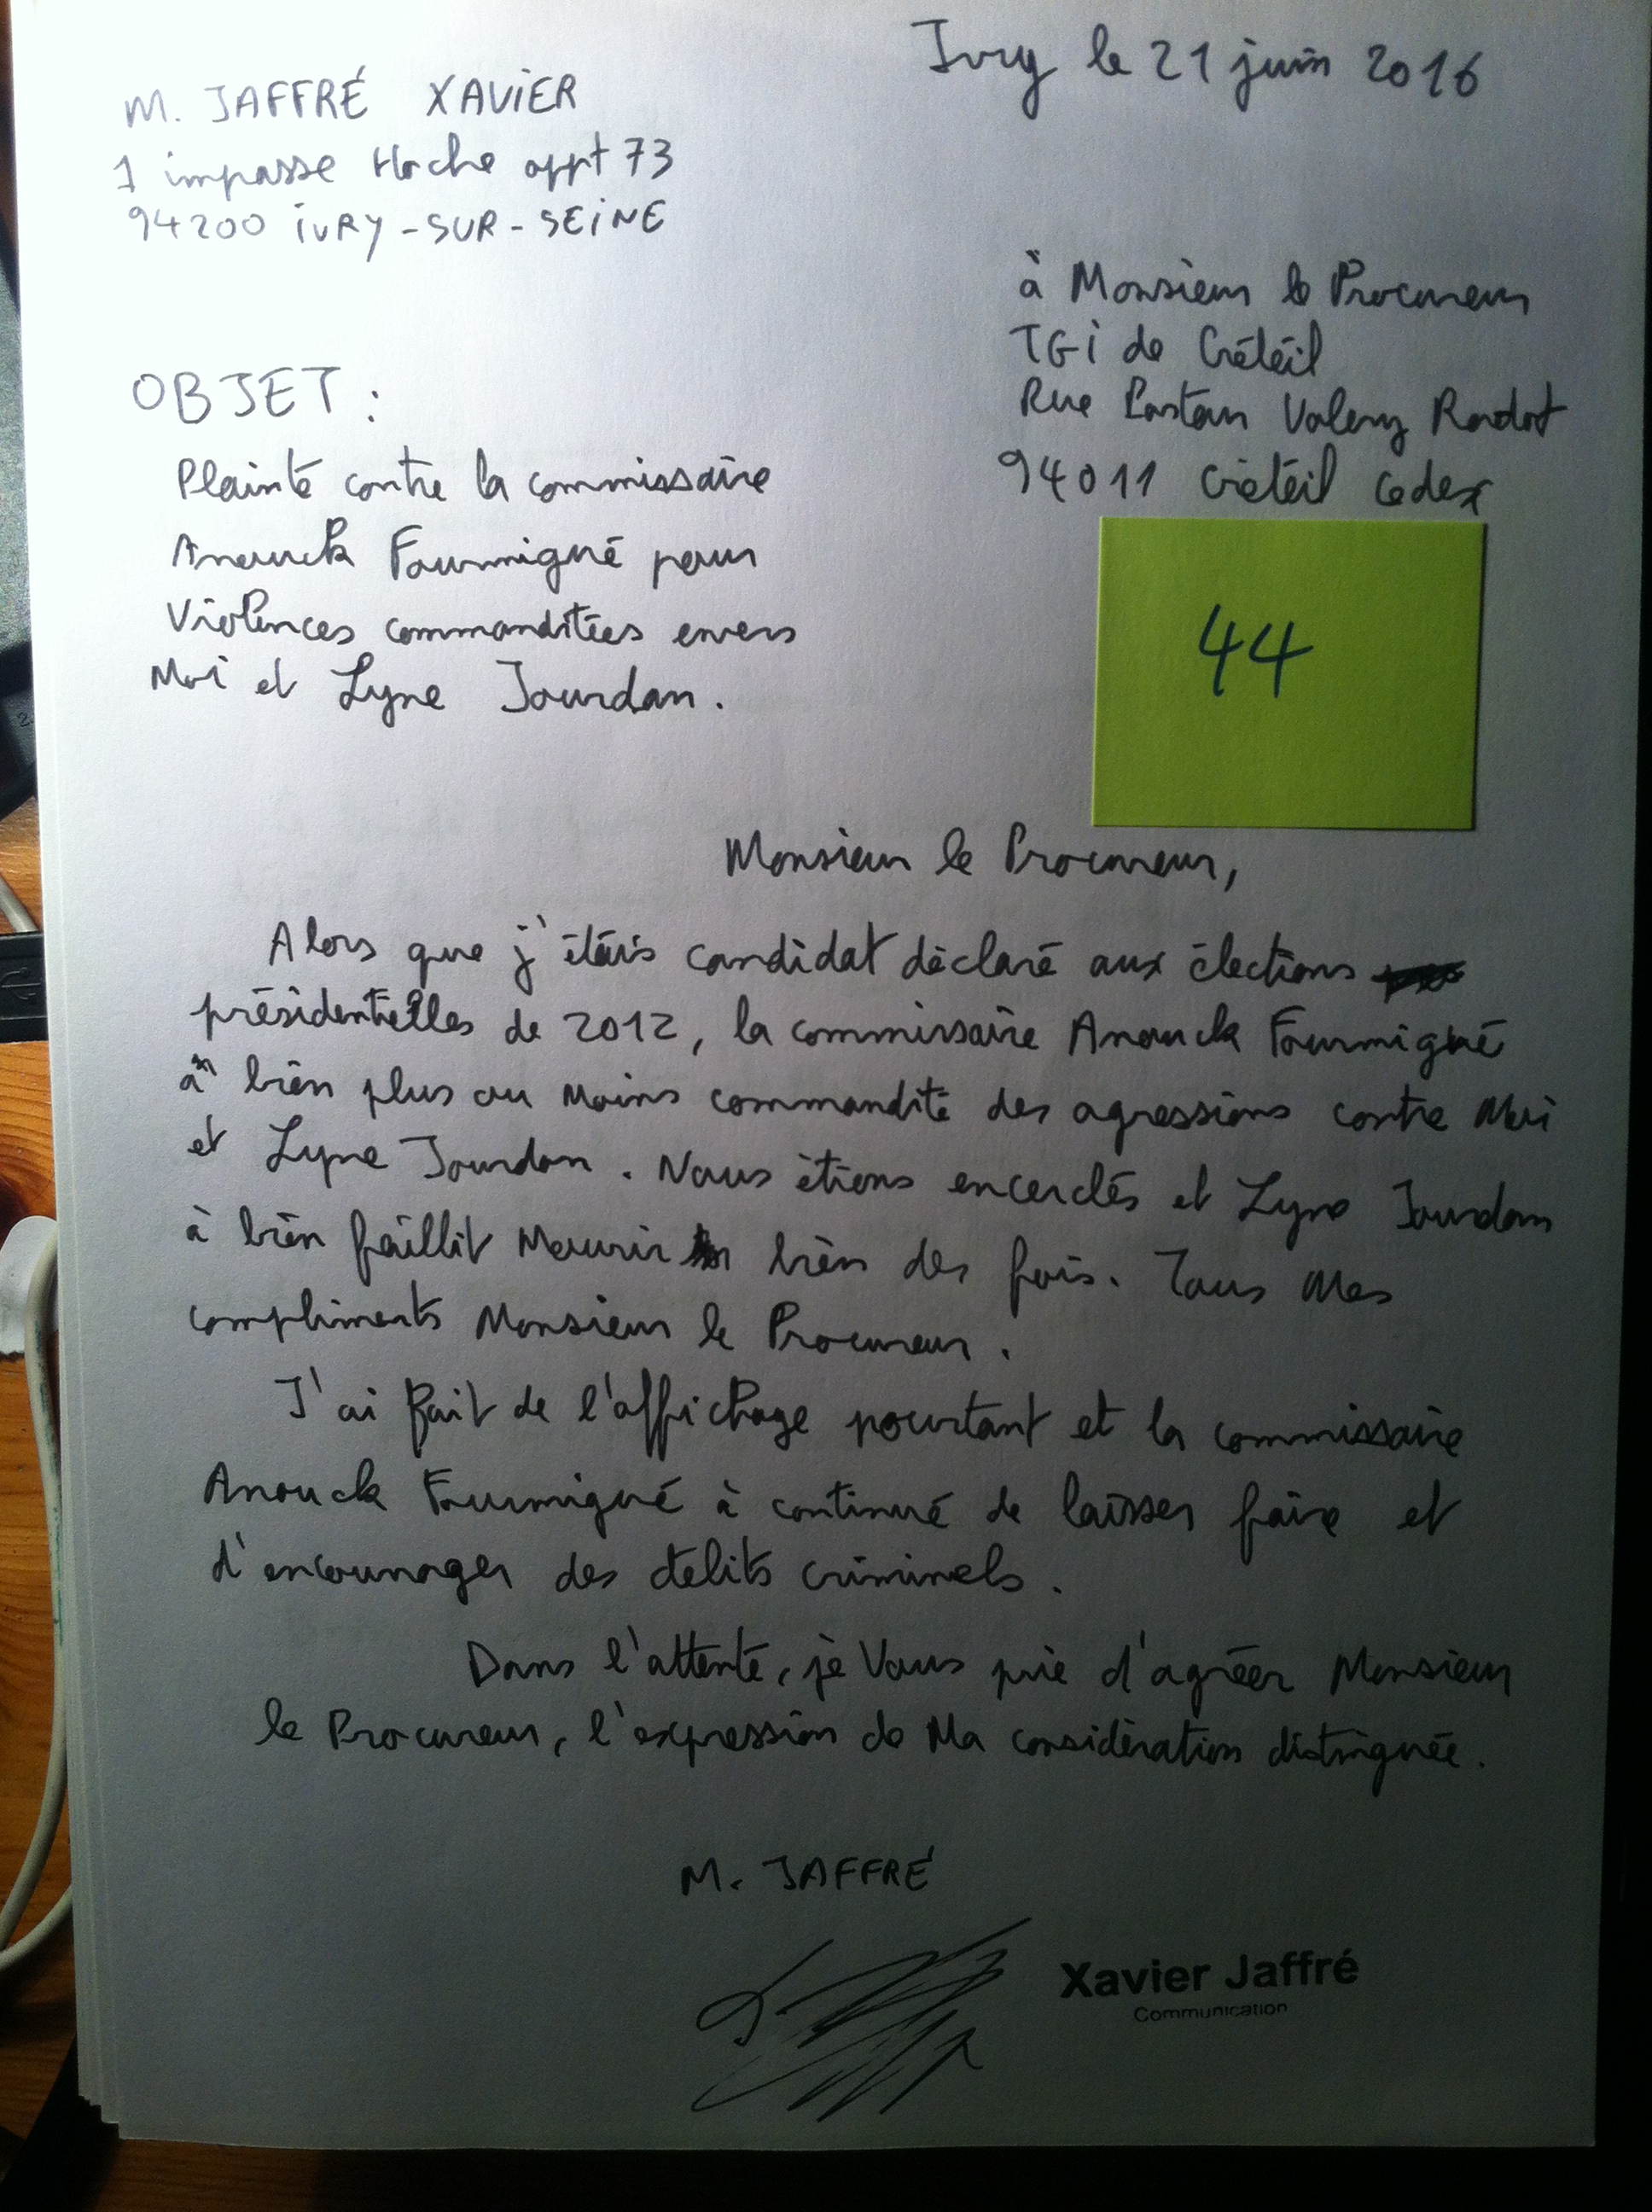 Ivry le 21 juin 2016
M. JAFFRÉ XAVIER
1 impasse Hoche appt 73
94200 IVRY-SUR-SEINE
à Monsieur le Procureur
TGI de Créteil
Rue Pasteur Valery Radot
94011 Créteil cedex
OBJET :
Plainte contre la commissaire
Anouck Fourmigué pour
Violences commanditées envers
Moi et Lyne Jourdan.
44
Monsieur le Procureur,
Alors que j'étais candidat déclaré aux élections
présidentielles de 2012, la commissaire Anouck Fourmigué
à bien plus ou moins commandité des agressions contre Moi
et Lyne Jourdan. Nous étions encerclés et Lyne Jourdan
à bien faillit Mourir bien des fois. Tous Mes
compliments Monsieur le Procureur.
J'ai fait de l'affichage pourtant et la commissaire
Anouck Fourmigué à continué de laisser faire et
d'encourager des délits criminels.
Dans l'attente, je Vous prie d'agréer Monsieur
le Procureur, l'expression de Ma considération distinguée.
M. JAFFRÉ
Xavier Jaffré
Communication